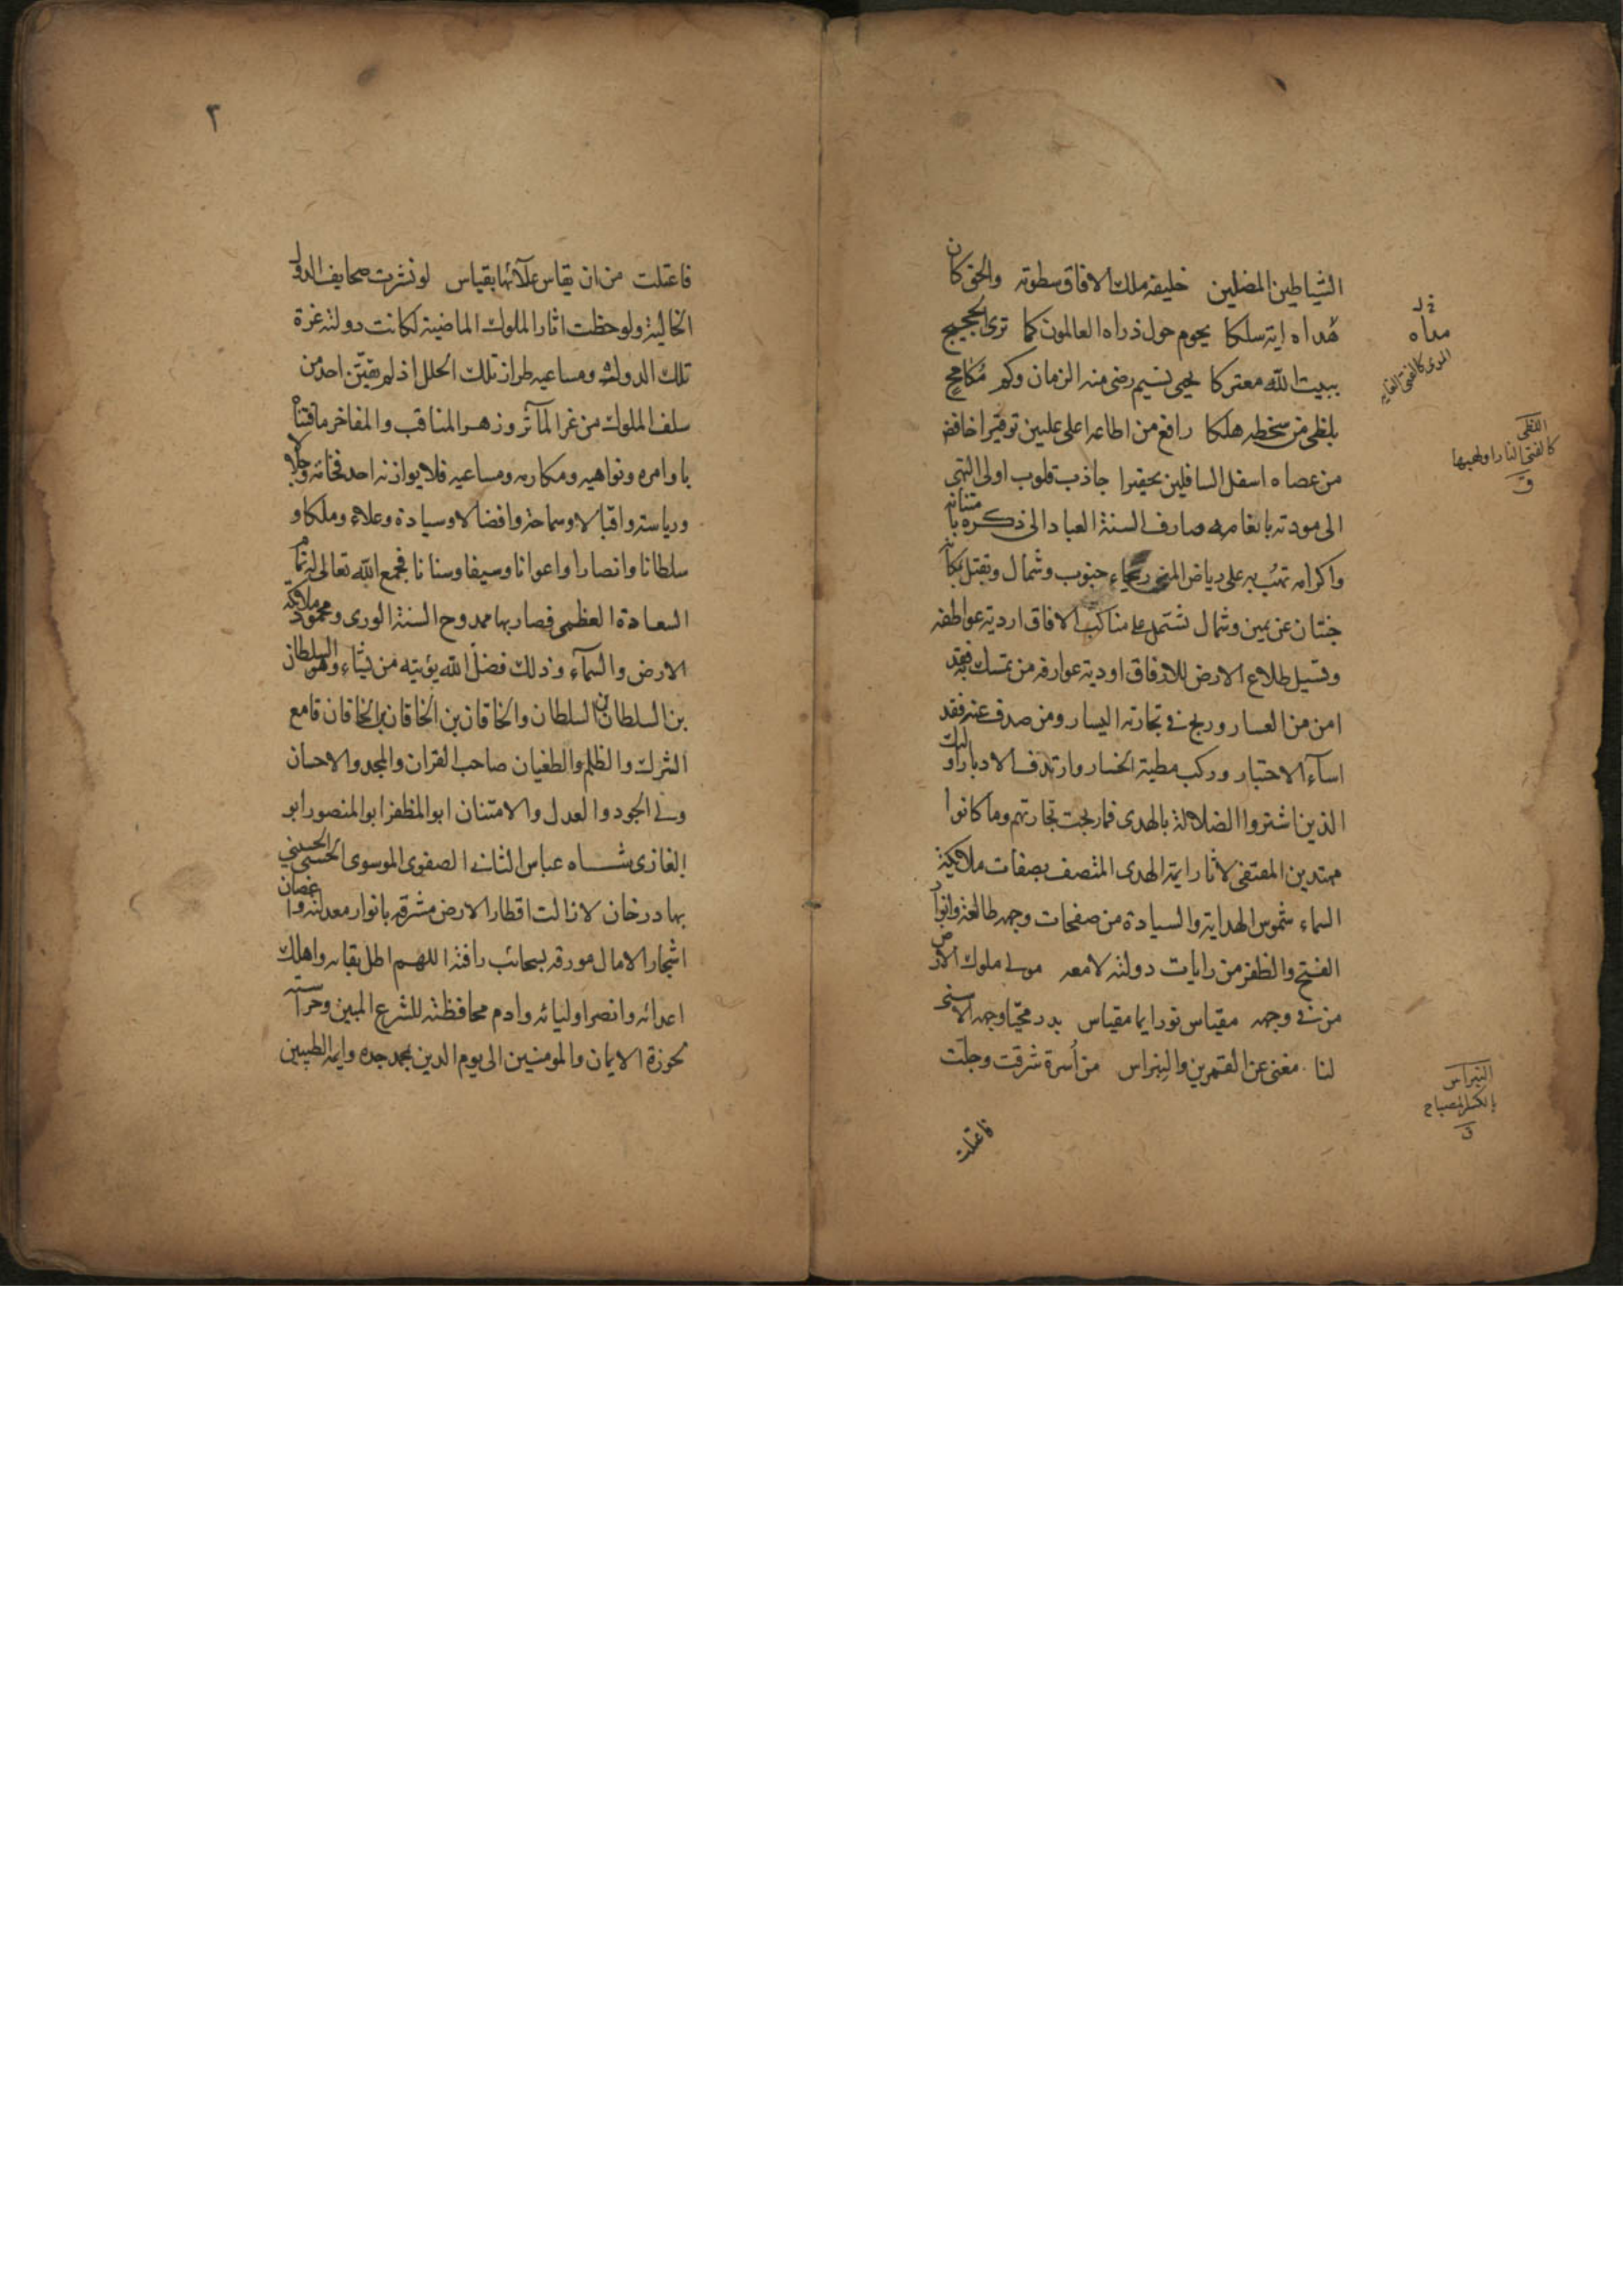 الشياطين المضلين خليفة ملك الافاق سطوته والحق كان
هداه اية سلكا يحوم حول ذراه العالمون كما ترى الحجيج
ببيت الله معتركا يحيى نسيم رضى منه الزمان وكم مكافح
بلظى من سخطه هلكا رافع من اطاعه اعلى عليين توقيرا خافض
من عصاه اسفل السافلين تحقيرا جاذب قلوب اولى النهى
الى مودته بانعامه صارف السنة العباد الى ذكره بامتنانه
واكرامه تهب به على رياض المنى ريحاء جنوب وشمال وتقتل بكا
جنتان عن يمين وشمال تشتمل على مناكب الافاق اردية عواطفه
وتسيل طلاع الارض للارفاق اودية عوارفه من تمسك به فقد
امن من العسار وربح في تجارته اليسار ومن صدف عنه فقد
اساء الاختيار وركب مطية الخسار وارتدف الادبار اولئك
الذين اشتروا الضلالة بالهدى فما ربحت تجارتهم وما كانوا
مهتدين المقتفى لاثار ايمة الهدى المتصف بصفات ملائكة
السماء شموس الهداية والسيادة من صفحات وجهه طالعة وانوار
الفتح والظفر من رايات دولته لامعه مولى ملوك الارض
من في وجهه مقياس نور ايما مقياس بدر محيا وجهه الاسنى
لنا مغنى عن القمرين والنبراس من اسرة شرقت وجلت
فاعتلت
مداه
المدى كالفتى الغاية
اللظى
كالفتى النار او لهبها
ق
النبراس
بالكسر المصباح
ق
٢
فاعتلت من ان يقاس علآئها بقياس لو نشرت صحايف الدول
الخالية ولو حظت اثار الملوك الماضية لكانت دولته غرة
تلك الدول ومساعيه طراز تلك الحلل اذ لم يتفق احد من
سلف الملوك من غر المآثر وزهر المناقب والمفاخر ما اقتناه
باوامره ونواهيه ومكارمه ومساعيه فلا يوازنه احد فخامة وجلالا
ورياسة واقبالا وسماحة وافضالا وسيادة وعلاء وملكا و
سلطانا وانصارا واعوانا وسيفا وسنانا فجمع الله تعالى له تمام
السعادة العظمى فصار بها ممدوح السنة الورى ومحمود ملائكة
الارض والسمآء وذلك فضل الله يؤتيه من يشاء وهو السلطان
بن السلطان بن السلطان والخاقان بن الخاقان بن الخاقان قامع
الشرك والظلم والطغيان صاحب القران والمجد والاحسان
ولى الجود والعدل والامتنان ابو المظفر ابو المنصور ابو
الغازى شاه عباس الثانى الصفوى الموسوى الحسينى
بهادر خان لازالت اقطار الارض مشرقة بانوار معدلته واغصان
اشجار الامال مورقة بسحائب رافته اللهم اطل بقائه واهلك
اعدائه وانصر اوليائه وادم محافظته للشرع المبين وحراسته
لحوزة الايمان والمومنين الى يوم الدين بمحمد جده وايمة الطيبين